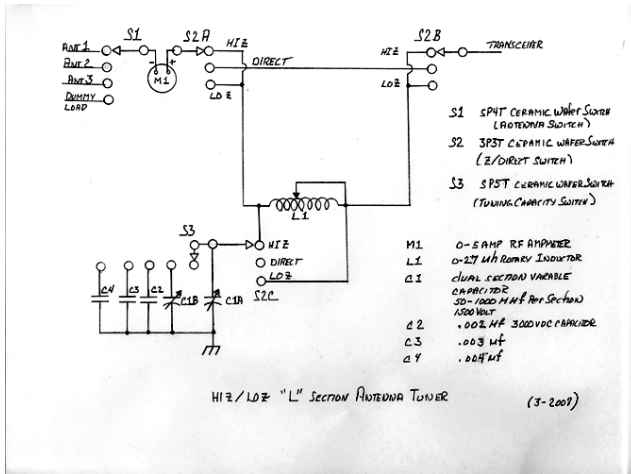 S1
S2A
S2B
ANT1
HIZ
HIZ
TRANSCEIVER
ANT2
- +
M1
DIRECT
ANT3
LOZ
LOZ
DUMMY
LOAD
S1 SP4T CERAMIC WAFER SWITCH
(ANTENNA SWITCH)
S2 3P3T CERAMIC WAFER SWITCH
(Z/DIRECT SWITCH)
S3 SP5T CERAMIC WAFER SWITCH
(TUNING CAPACITY SWITCH)
L1
S3
HIZ
DIRECT
LOZ
S2C
C4
C3
C2
C1B
C1A
M1 0-5 AMP RF AMPMETER
L1 0-27 Uh ROTARY INDUCTOR
C1 dUAL SECTION VARABLE
CAPACITOR
50-1000 MMf Per SECTION
1500 VOLT
C2 .002 Mf 3000VDC CAPACITOR
C3 .003 Mf
C4 .004 Mf
HIZ/LOZ "L" SECTION ANTENNA TUNER
(3-2007)